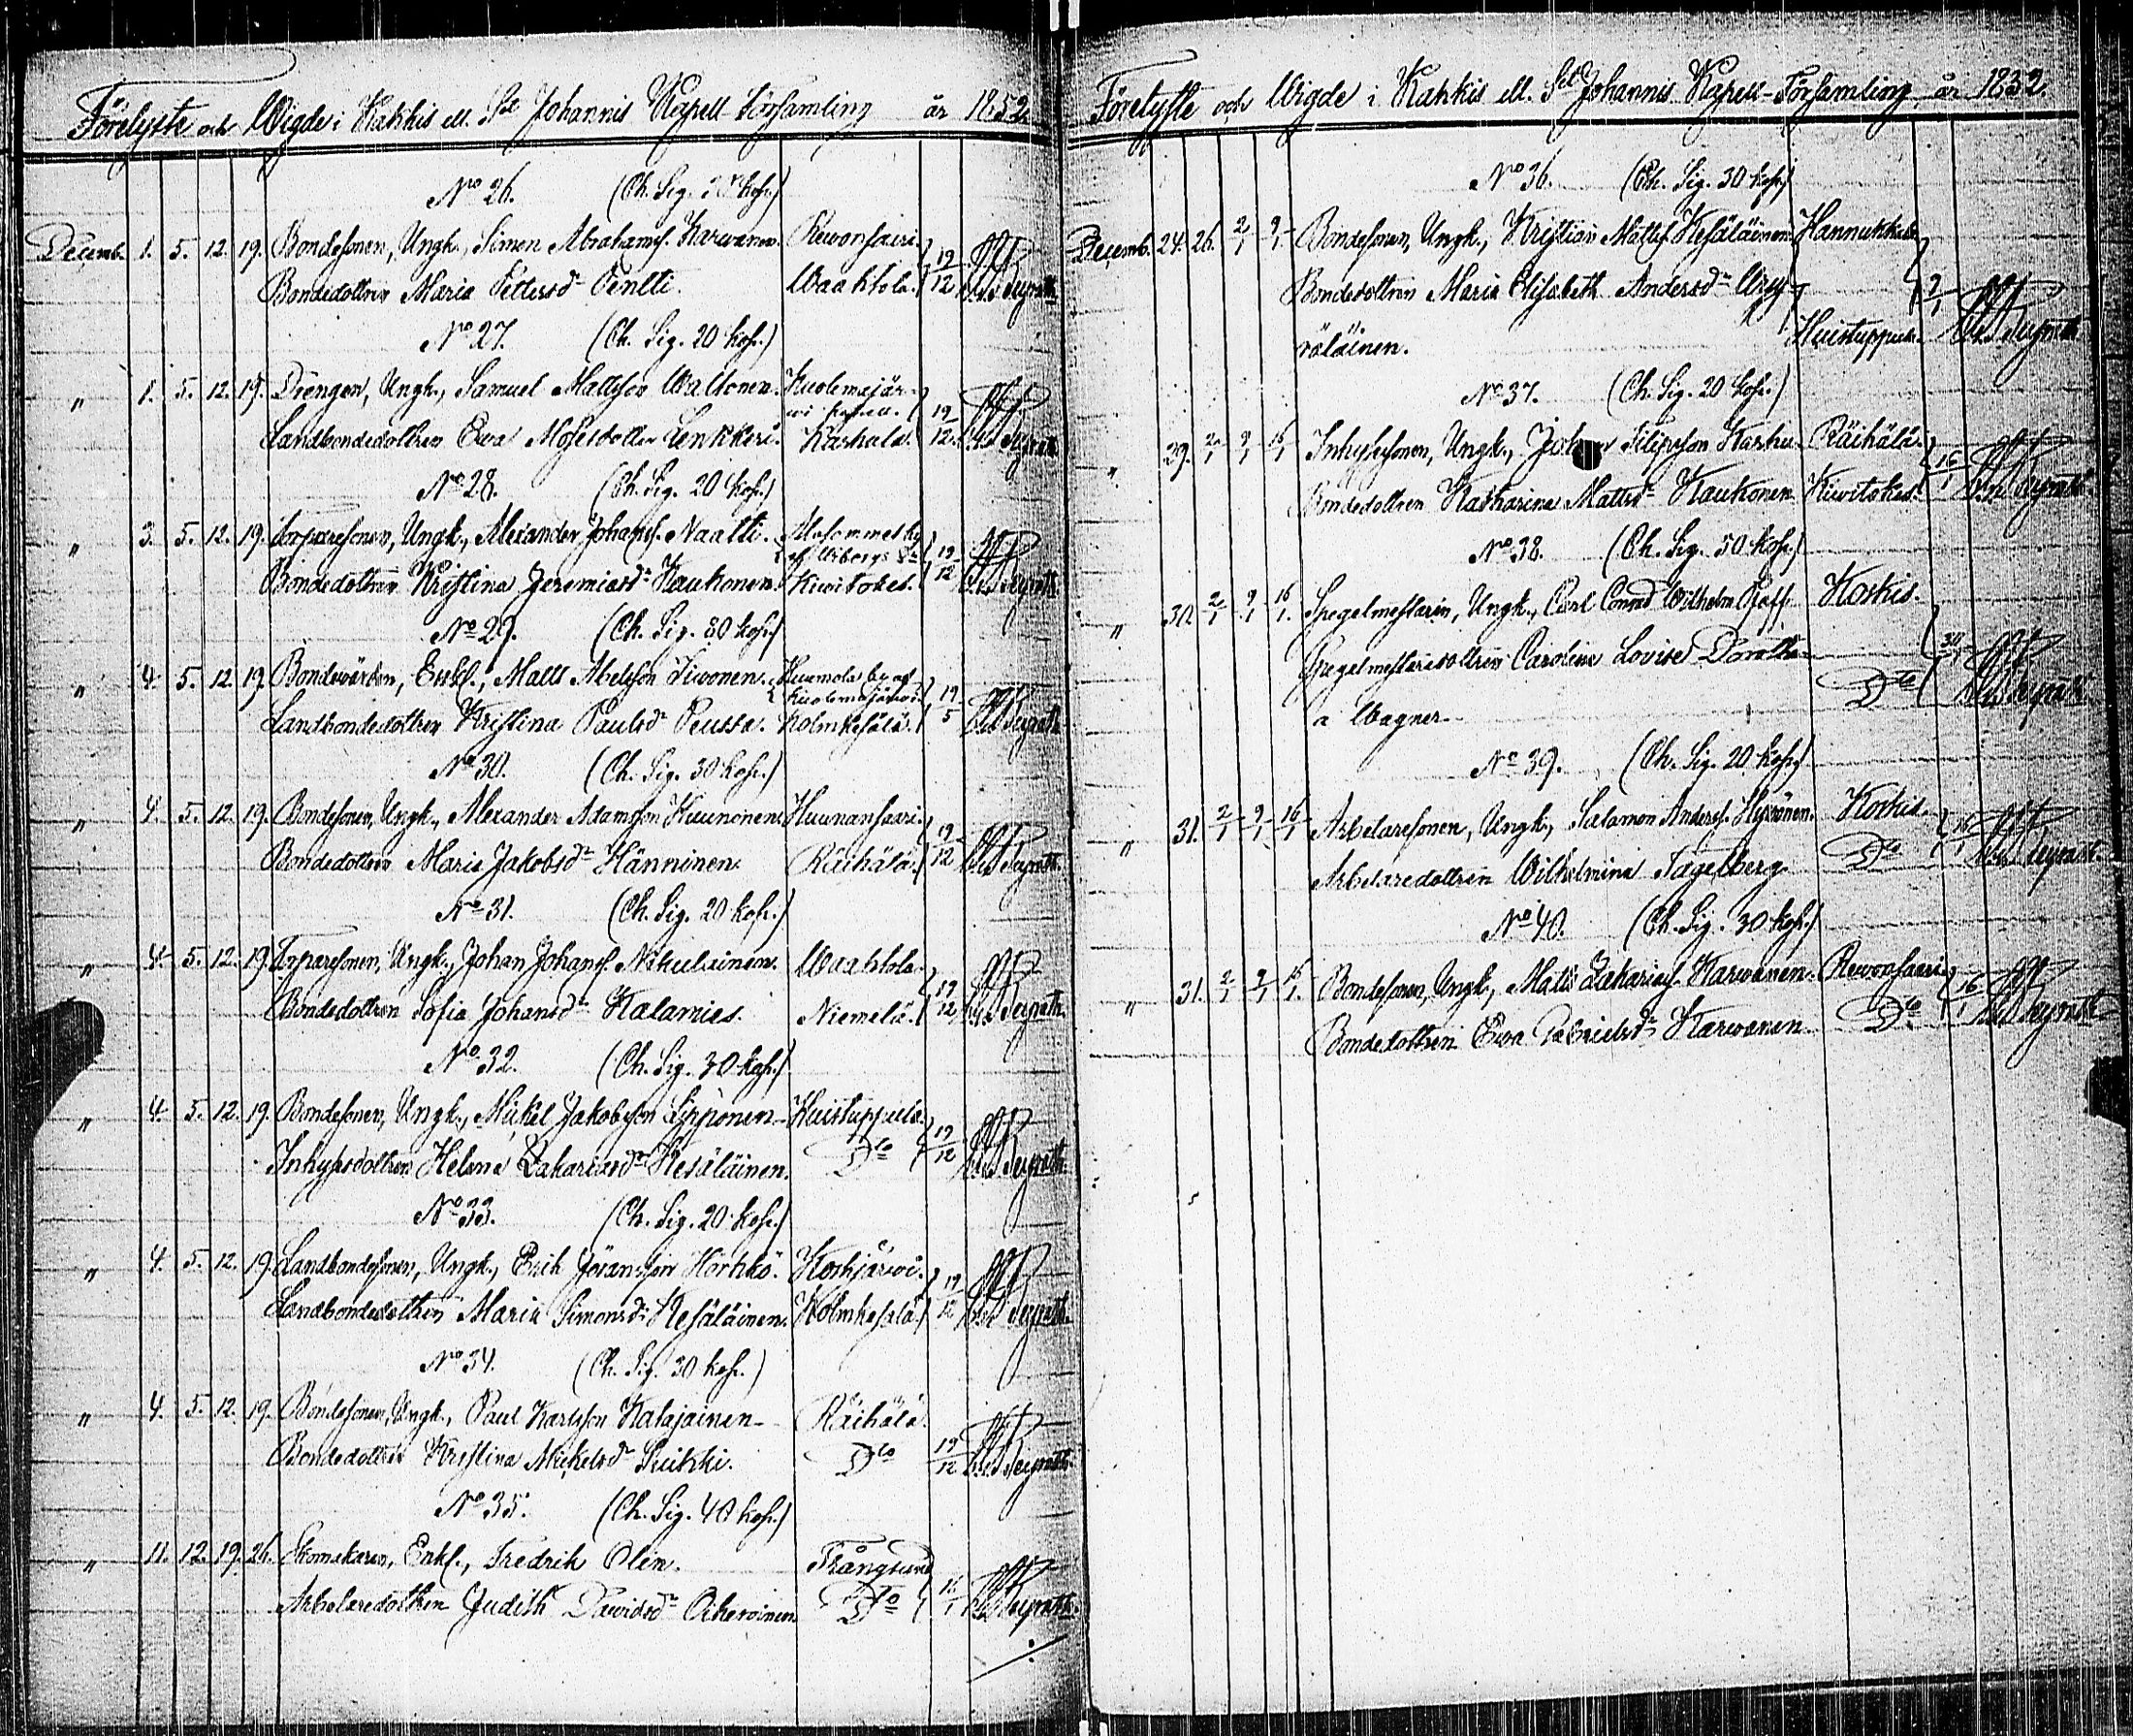 Förelyste och Wigde i Kakkis ell. S:t Johannis Kapell Församling år 1852
No 26. (Ch. Sig. 30 kop.)
Decemb. 1. 5. 12. 19. Bondesonen, Ungk., Simon Abrahams. Karwanen. Rewonsaari
Bondedottren Maria Pettersdr Pentti. Waahtola. 19/12
No 27. (Ch. Sig. 20 kop.)
" 1. 5. 12. 19. Drengen, Ungk., Samuel Mattsson Waltonen. Kuolemajär-
wi
Landbondedottren Ewa Mosesdotter Lenkkeri. Karhala. 19/12.
No 28. (Ch. Sig. 20 kop.)
" 3. 5. 12. 19. Torparesonen, Ungk., Alexander Johans. Naatti.
af Wiborgs
Bondedottren Kristina Jeremiasdr Kaukonen. Kiwitokes. 19/12
No 29. (Ch. Sig. 80 kop.)
" 4. 5. 12. 19. Bondewärden, Enkl., Matts Abelsson Siwonen. by af
Kuolemajärwi
Landbondedottren Kristina Paulsdr Peussa. Kolmkesälä. 19/5
No 30. (Ch. Sig. 30 kop.)
" 4. 5. 12. 19. Bondesonen, Ungk., Alexander Adamsson Kuunonen. Huunansaari.
Bondedottren Maria Jakobsdr Hänninen. Räihälä. 19/12
No 31. (Ch. Sig. 20 kop.)
" 4. 5. 12. 19. Torparesonen, Ungk., Johan Johans. Nikulainen. Waahtola.
Bondedottren Sofia Johansdr Kalamies. Niemelä. 19/12
No 32. (Ch. Sig. 30 kop.)
" 4. 5. 12. 19. Bondesonen, Ungk., Mickel Jakobsson Lipponen Kuistuppula.
Inhysesdottren Helena Zakariasdr Kesäläinen. Dto 19/12
No 33. (Ch. Sig. 20 kop.)
" 4. 5. 12. 19. Landbondesonen, Ungk., Erik Jöransson Hörhkö. Koskjärwi.
Landbondedottren Maria Simonsdr Kesäläinen. Kolmkesälä. 19/12
No 34. (Ch. Sig. 30 kop.)
" 4. 5. 12. 19. Bondesonen, Ungk., Paul Karlsson Kalajainen Räihälä.
Bondedottren Kristina Mickelsdr Suikki. Dto 19/12
No 35. (Ch. Sig. 40 kop.)
" 11. 12. 19. 26. Skomakaren, Enkl., Fredrik Olin. Trångsund
Arbetaredottren Judith Davidsdr Oiheroinen Dto
Förelyste och Wigde i Kakkis ell. S:t Johannis Kapell-Församling år 1852.
No 36. (Ch. Sig. 30 kop.)
Decemb. 24. 26. 2/1 9/1 Bondesonen, Ungk., Kristian Matts. Kesäläinen Hannukkala
Bondedottren Maria Elisabeth Andersdr Wey-
räläinen. Kuistuppula
No 37. (Ch. Sig. 20 kop.)
" 29. 2/1 9/1 16/1 Inhysesonen, Ungk., Johan Filipsson Karhu Räihälä.
Bondedottren Katharina Mattsdr Kaukonen Kiwitokes. 16/1
No 38. (Ch. Sig. 50 kop.)
" 30. 2/1 9/1 16/1. Spegelmestarin, Ungk., Carl Conrad Wilhelm Koskis.
Spegelmestaredottren Carolina Lovisa Dorothe-
a Wagner Dto
No 39. (Ch. Sig. 20 kop.)
" 31. 2/1 9/1 16/1 Arbetaresonen, Ungk., Salamon Anders. Hyvönen. Koskis.
Arbetaredottren Wilhelmina Fagelberg Dto 16/1
No 40. (Ch. Sig. 30 kop.)
" 31. 2/1 9/1 16/1. Bondesonen, Ungk., Matts Zacharias. Karwanen. Rewonsaari.
Bondedottren Ewa Gabrielsdr Karwanen Dto 16/1